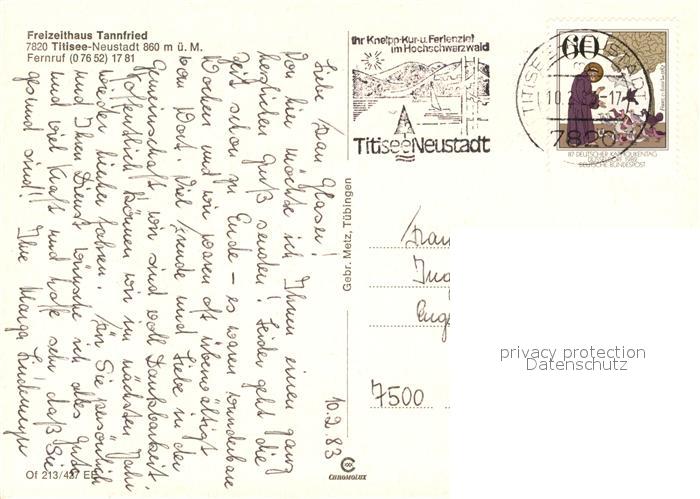 Freizeithaus Tannfried
7820 Titisee-Neustadt 860 m ü. M.
Fernruf (0 76 52) 17 81
Liebe Frau Glaser!
Von hier möchte ich Ihnen einen ganz
herzlichen Gruß senden! Leider geht die
Zeit schon zu Ende – es waren wunderbare
Wochen und wir waren oft überwältigt
vom Wort. Viel Freude und Liebe in der
Gemeinschaft, wir sind voll Dankbarkeit.
Hoffentlich können wir im nächsten Jahr
wieder hierher fahren. Für Sie persönlich
und Ihren Dienst wünsche ich alles Gute
und viel Kraft und hoffe sehr, daß Sie
gesund sind! Ihre
10.9.83
Of 213/427 EE
Gebr. Metz, Tübingen
CHROMOLUX
Ihr Kneipp-Kur-u. Ferienziel
im Hochschwarzwald
TitiseeNeustadt
TITISEE-NEUSTADT
7820
60
87. DEUTSCHER KATHOLIKENTAG
DÜSSELDORF 1982
DEUTSCHE BUNDESPOST
Frau
7500
privacy protection
Datenschutz